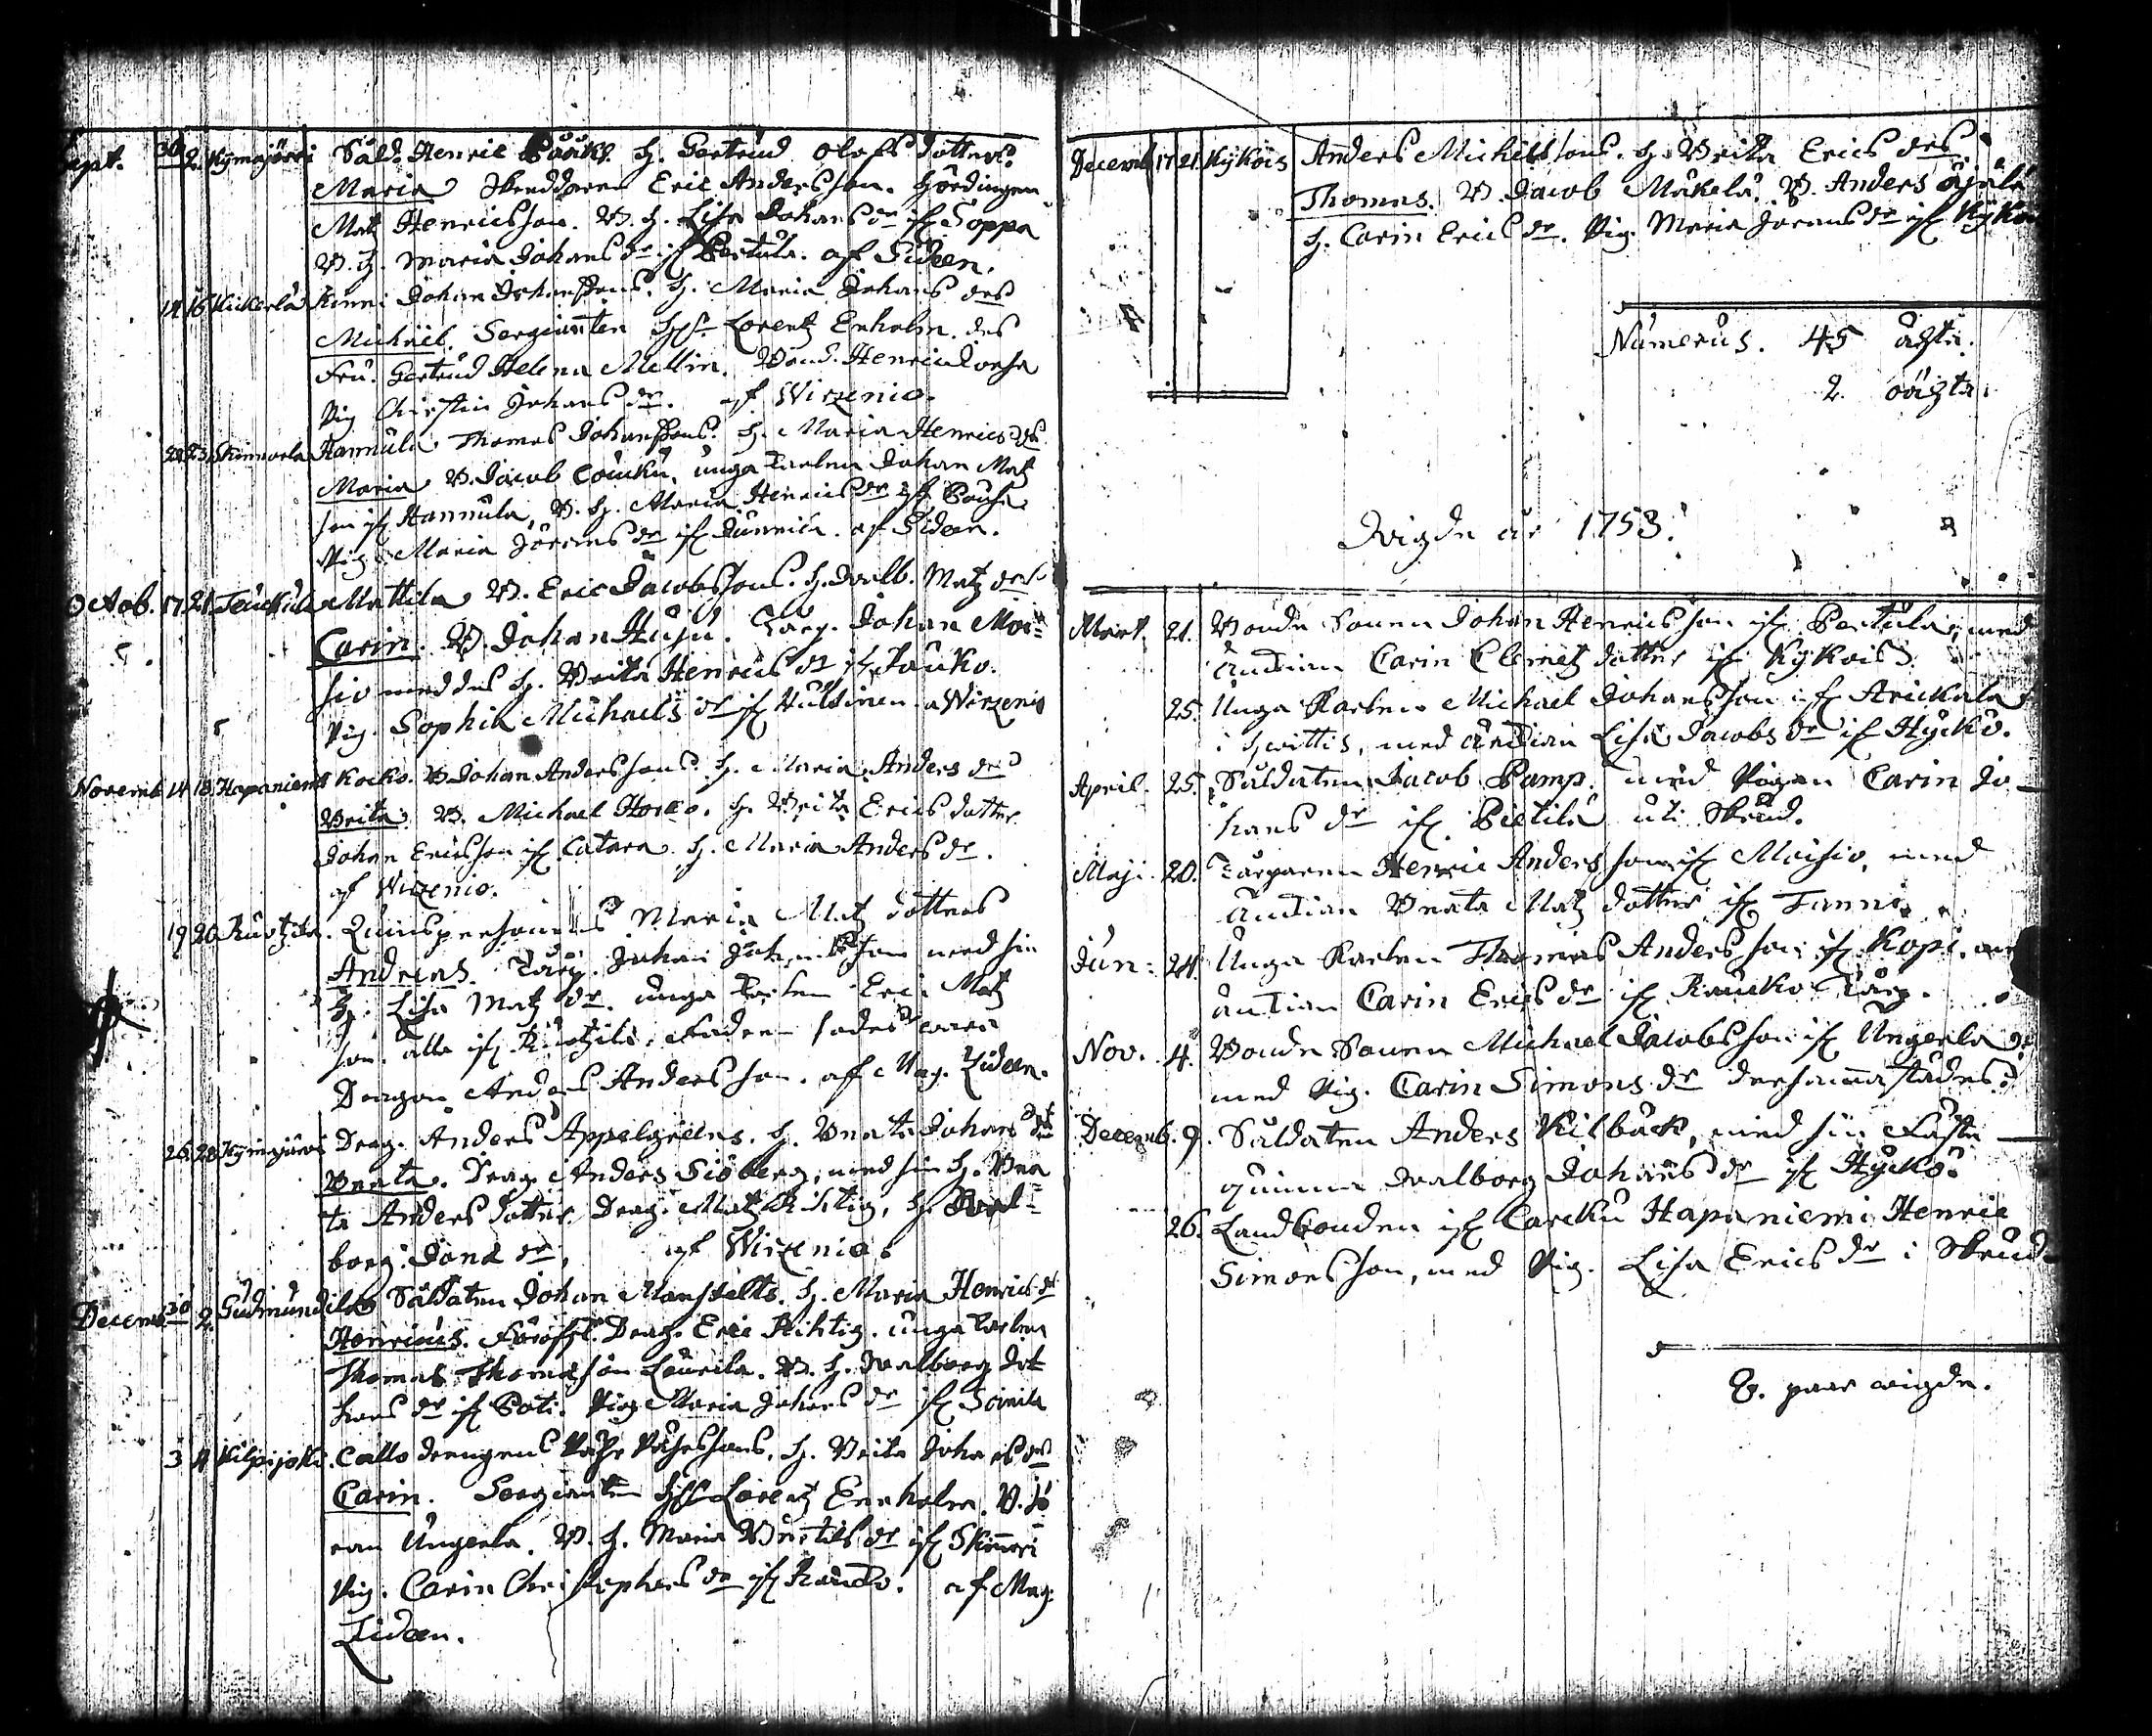 Sept. 30 2. Kymajärvi Sald. Henric Påuks. H. Gertrud Olofs dotters
Maria Skräddaren Eric Andersson. Hördingen
Matz Henricsson. B. H. Lisa Johans dr if Soppa
B. H. Maria Johans dr if Pertula. af Lideen.
14 16 Kickerlä Kinni Johan Johanssons. H. Maria Johans drs
Michäel. Sergianten Lorentz Enholm. des
Fru. Gertrud Helena Mellin. Bond. Henric
Pig Christin Johans dr. af Wirzenio.
22 23 Skinnarla Hannula Thomas Johanssons. H. Maria Henrics drs
Maria B. Jacob Couku, unga Karlen Johan Matz
son if Hannula, B. H. Maria Henrics dr if
Pig. Maria Jörans dr if Junnila. af Lideen.
Octob. 17. 21. Mattila B. Eric Jacobssons. H. Walb. Matz drs
Carin. B. Johan Huju. Torp. Johan Moi=
sio med des H. Brita Henrics dr if Jouko.
Pig. Sophia Michaels dr if Huldinen a Wirzenio
Novemb 14 18. Hapaniemi Kocko. B. Johan Anderssons. H. Maria Anders drs
Brita. B. Michael Horco. H. Brita Erics dotter
Johan Ericsson if Catara. H. Maria Anders dr.
af Wirzenio.
19 20 Quinspersonens Maria Matz dotters
Andreas. Torp. Johan Johansson med sin
H. Lisa Matz dr. unga Karlen Eric Matz
son. alla if Fadern sades vara
Dragon Anders Andersson. af Mag. Lideen.
26. 28. Kymijärvi Drag. Anders Appelgreens. H. Beata Johans drs
Beata. Drag. Anders Siöberg, med sin H. Bea
ta Anders dotter. Drag. Matz Richtig, H. Wal=
borg. Jona dr, af Wirzenio.
Decemb. 30 2. Gudmundila Saldaten Johan Manstells. H. Maria Henrics drs
Henricus. Drag. Eric Richtig. unga Karlen
Thomas Thomasson Leurila. B. H. Walborg Jo=
hans dr if Poti. Pig Maria Johans dr if
3 4 Kilpijoki. Callo drengens H. Brita Johans drs
Carin. Sergianten Lorentz Eneholm. B. Jö
ran Ungerla. B. H. Maria Bertils dr if Skinnari
Pig. Carin Christophers dr if af Mag.
Lideen.
Decemb 17 21. Kykois Anders Michelssons. H. Brita Erics drs
Thomas. B. Jacob Mäkelä. B. Anders Äjälä
H. Carin Erics dr. Pig. Maria Jörans dr if Kykois
Numerus. 45 ägta.
2. oägta.
Wigde år 1753.
Mart. 21. Bonde Sonen Johan Henricsson if Pertula, med
Änkian Carin Clemetz dotter if Kykois.
25. Unga Karlen Michael Johansson if Arickala
i Hwittis, med änkian Lisa Jacobs dr if Hyckö.
April. 25. Saldaten Jacob Pamp. med Pigan Carin Jo=
hans dr if Pietilä uti Skrud.
Maji. 20. Torparen Henric Andersson if Moisio, med
änkian Beata Matz dotter if Tanni.
Jun: 24. Unga Karlen Thomas Andersson if Kopi. med
änkian Carin Erics dr if Rauko Torp.
Nov. 4. Bonde Sonen Michael Jacobsson if Ungerla
med Pig. Carin Simons dr dersammastädes.
Decemb. 9. Saldaten Anders Kilbäck, med sin Fäste
quinna Walborg Johans dr if Hyckö.
26. Landbonden if Careku Hapaniemi Henric
Simonsson, med Pig. Lisa Erics dr i Skrud
8. paar wigde.